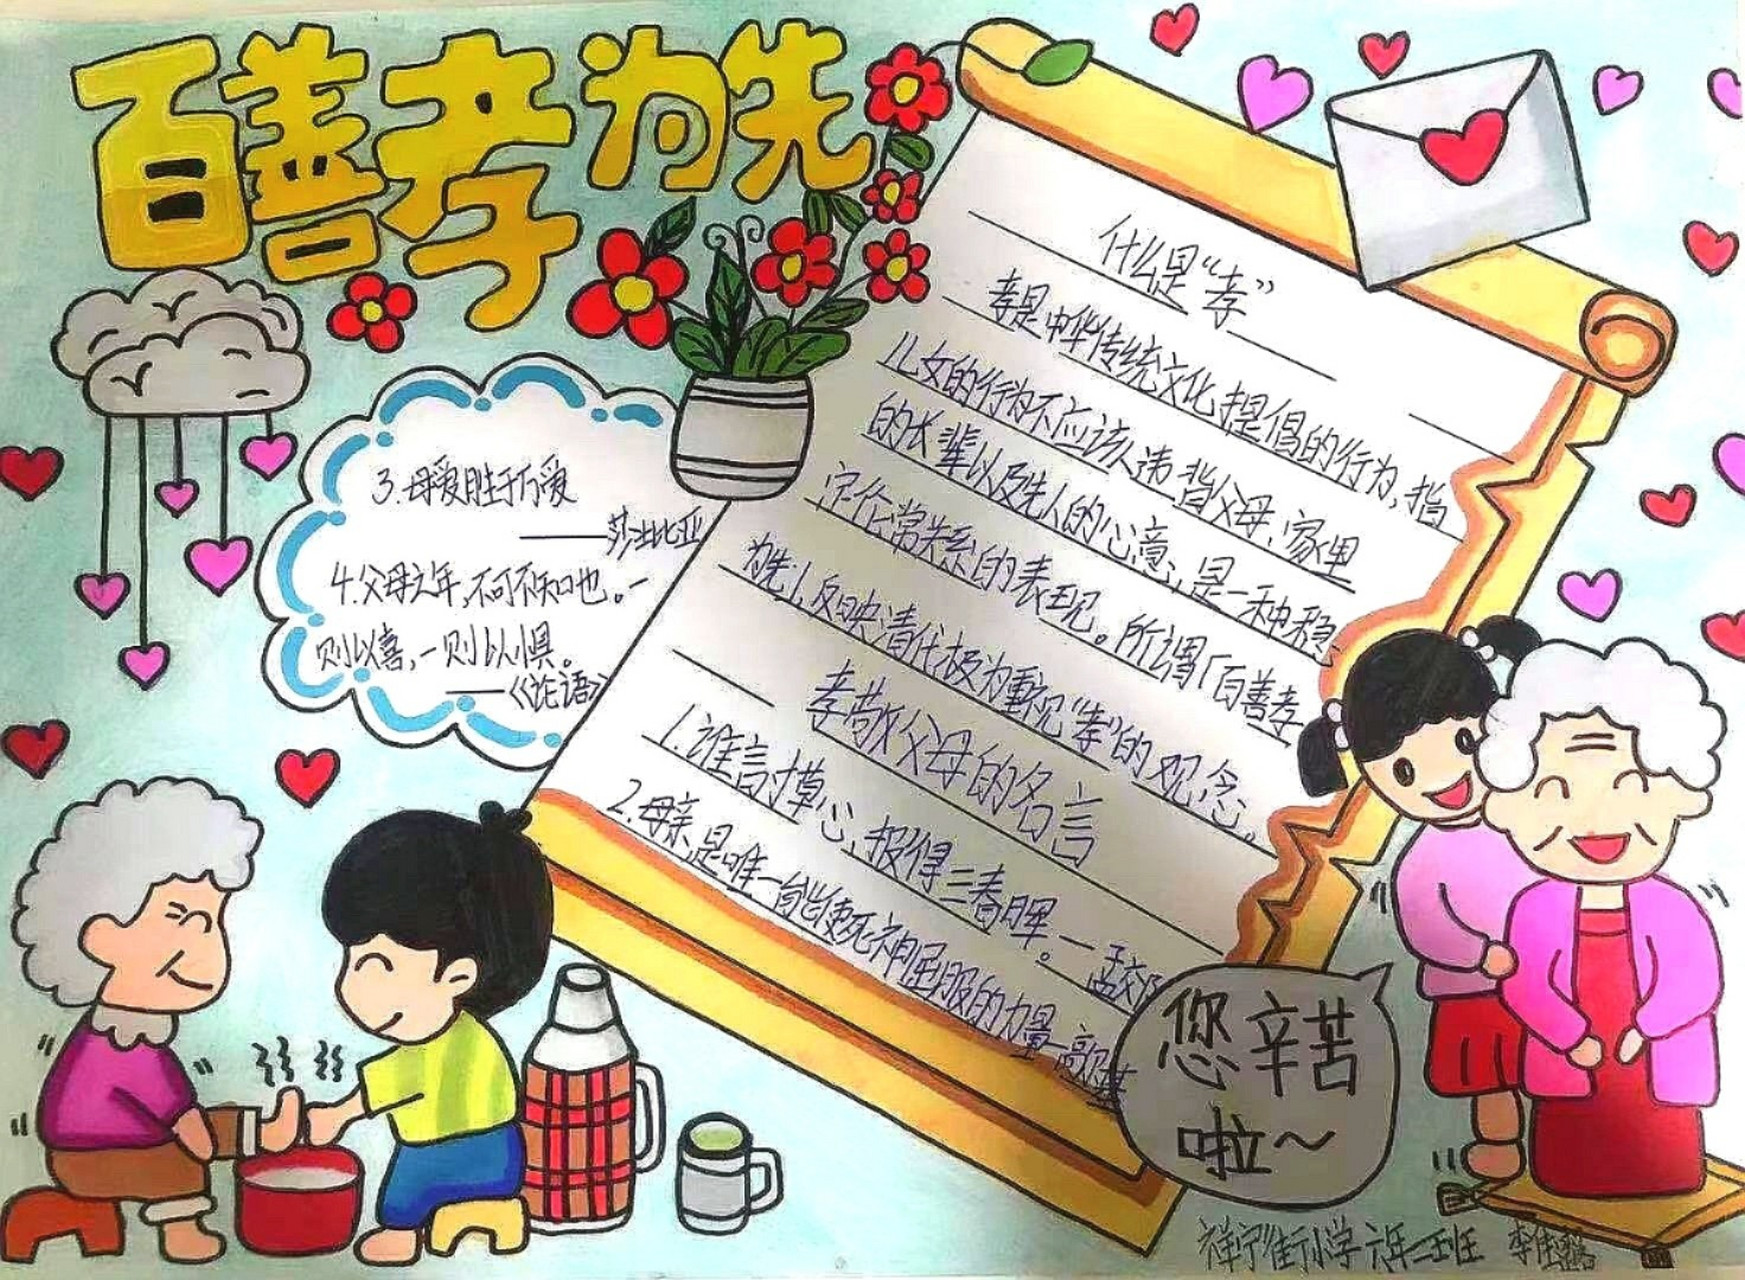 百善孝为先
什么是“孝”
孝是中华传统文化提倡的行为,指
儿女的行为不应该违背父母、家里
的长辈以及先人的心意,是一种稳
定伦常关系的表现。所谓「百善孝
为先」,反映清代极为重视“孝”的观念。
孝敬父母的名言
1.谁言寸草心,报得三春晖。—孟郊
2.母亲是唯一能使死神屈服的力量—高尔基
3.母爱胜于万爱
——莎士比亚
4.父母之年,不可不知也。一
则以喜,一则以惧。
——《论语》
您辛苦
啦~
祥宁街小学 六年二班 李佳